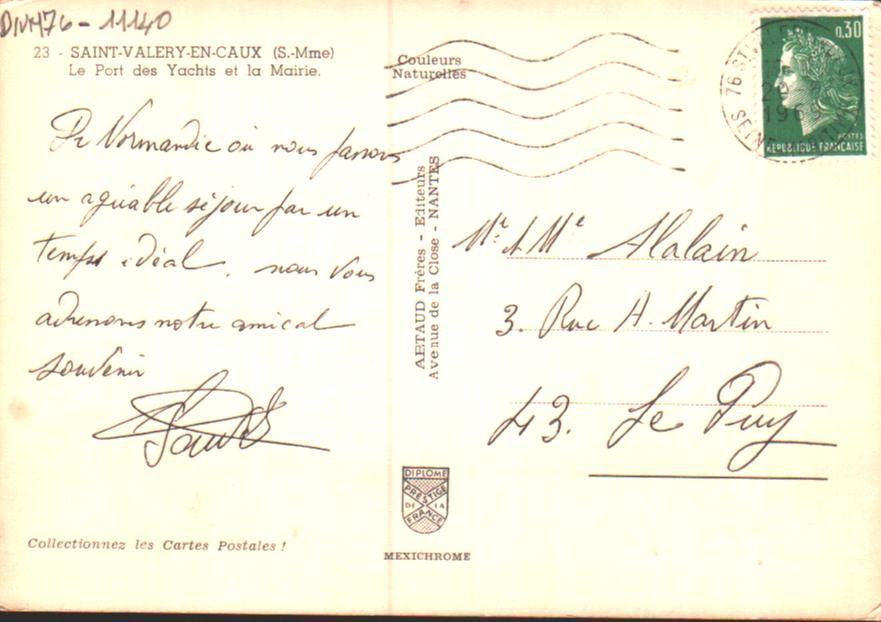 DIV176-11140
23 - SAINT-VALERY-EN-CAUX (S.-Mme)
Le Port des Yachts et la Mairie.
Couleurs
Naturelles
De Normandie où nous faisons
un agréable séjour par un
temps idéal, nous vous
adressons notre amical
souvenir
Collectionnez les Cartes Postales !
ARTAUD Frères - Editeurs
Avenue de la Close - NANTES
DIPLOME
PRESTIGE
DE LA
FRANCE
MEXICHROME
0,30
POSTES
REPUBLIQUE FRANÇAISE
76 ST
SEINE
Mr & Me Alalain
3. Rue H. Martin
43. Le Puy